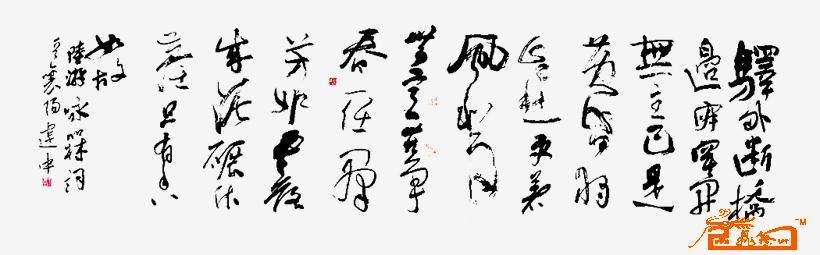 驛外斷橋
邊寂寞開
無主已是
黃昏獨
自愁更著
風和雨
無意苦爭
春一任群
芳妒零落
成泥碾作
塵只有香
如故
陸游詠槑詞
襄陽建中